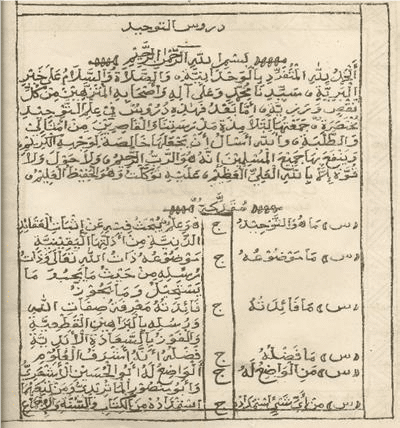 دروس التوحيد
بسم الله الرحمن الرحيم
الحمد لله المتفرد بالوحدانية، والصلاة والسلام على خير
البرية، سيدنا محمد وعلى آله وأصحابه المنزهين من كل
نقص وريبة، أما بعد فهذه دروس في علم التوحيد
مختصرة جمعتها لتلامذة مدرستنا والقاصرين من أمثالي
والطلبة، والله أسأل أن يجعلها خالصة لوجهه الكريم
وينفع بها جميع المسلمين إنه هو الرب الرحيم ولا حول ولا
قوة إلا بالله العلي العظيم عليه توكلت وهو الحفيظ العليم
مقدمة
س ما هو التوحيد ج هو علم يبحث فيه عن إثبات العقائد
الدينية من أدلتها اليقينية
س ما موضوعه ج موضوعه ذات الله تعالى وذات
رسله من حيث ما يجب وما
يستحيل وما يجوز
س ما فائدته ج فائدته معرفة صفات الله
ورسله بالبراهين القطعية
والفوز بالسعادة الأبدية
س ما فضله ج فضله أنه أشرف العلوم
س من الواضع له ج الواضع له أبو الحسن الأشعري
وأبو منصور الماتريدي ومن تبعهما
س من أي شيء استمداده ج استمداده من الكتاب والسنة والإجماع